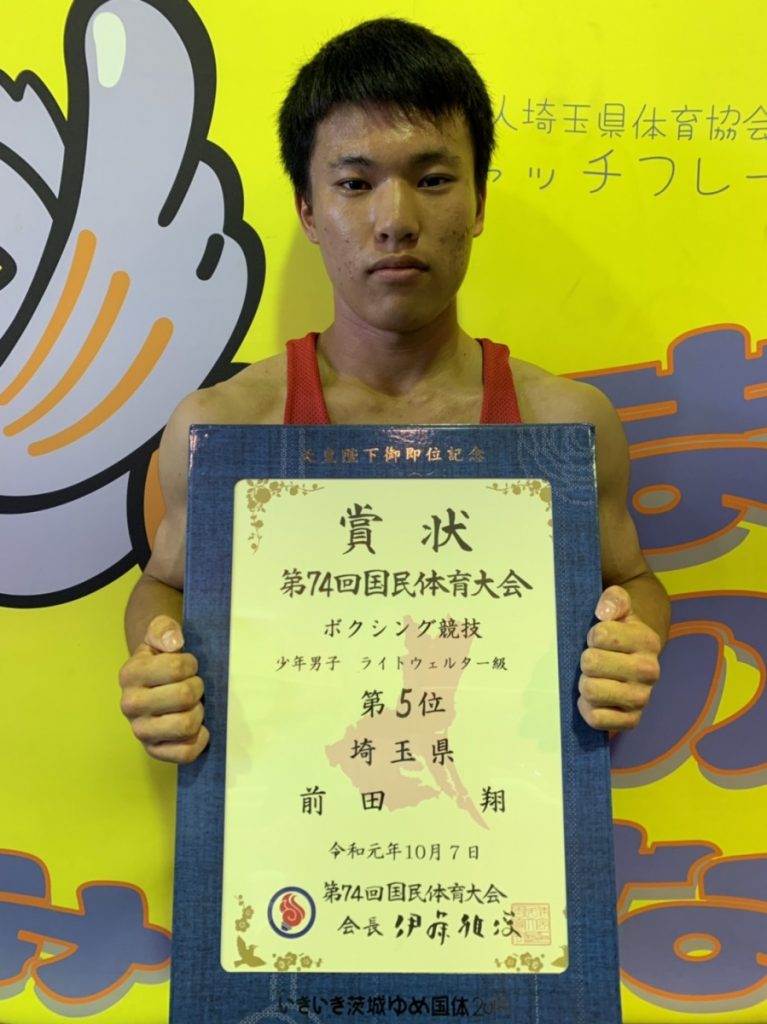 人埼玉県体育協会
ャッチフレー
天皇陛下御即位記念
賞状
第74回国民体育大会
ボクシング競技
少年男子 ライトウェルター級
第5位
埼玉県
前田 翔
令和元年10月7日
第74回国民体育大会
会長
いきいき茨城ゆめ国体